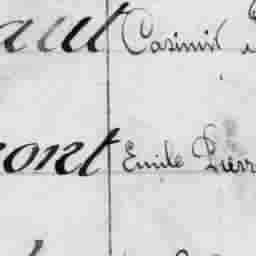 aut Casimir
ont Emile Pierr